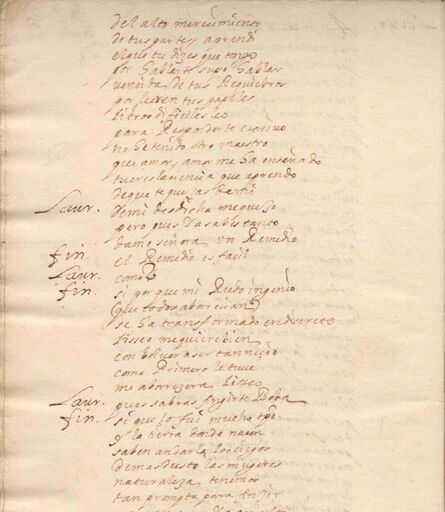 del alto mereçimiento
de tus partes aprendi
el que tu dizes que tengo
por hablarte supe hablar
vencida de tus Requiebros
por leer en tus papeles
libros dificiles leo
para Responderte escrivo
no he tenido otro maestro
que amor, amor me ha enseñado
tu eres la ciencia que aprendo
de que te quejas de mi
Laur. de mi desdicha me quejo
pero pues ya sabes tanto
dame señora un Remedio
fin. el Remedio es facil
Laur. como
fin. si por que mi Rudo ingenio
que todos aborrecian
se ha transformado en discreto
Liseo me quiere bien
con bolver a ser tan necio
como Primero le tuve
me aborrezera Liseo
Laur. pues sabras fingirte Boba
fin. si que lo fui mucho tpo
y la tierra donde naçen
saben andarla los ciegos
demas desto las mugeres
naturaleza tenemos
tan prompta para finjir